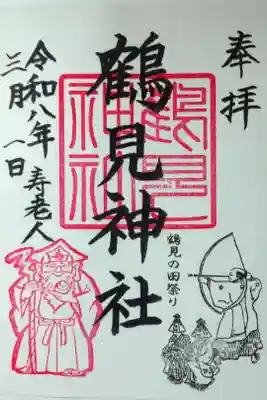 奉拝
鶴見神社
鶴見の田祭り
令和八年 寿老人
三月一日
鶴見
神社